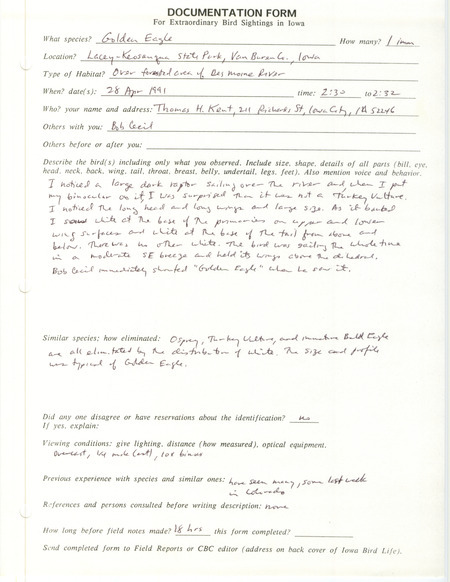 DOCUMENTATION FORM
For Extraordinary Bird Sightings in Iowa
What species? Golden Eagle How many? 1 imm
Location? Lacey-Keosauqua State Park, Van Buren Co., Iowa
Type of Habitat? Over forested area of Des Moines River
When? date(s): 28 Apr 1991 time: 2:30 to 2:32
Who? your name and address: Thomas H. Kent, 211 Richards St, Iowa City, IA 52246
Others with you: Bob Cecil
Others before or after you:
Describe the bird(s) including only what you observed. Include size, shape, details of all parts (bill, eye,
head, neck, back, wing, tail, throat, breast, belly, undertail, legs, feet). Also mention voice and behavior.
I noticed a large dark raptor sailing over the river and when I put
my binocular on it I was surprised that it was not a Turkey Vulture.
I noticed the long head and long wings and large size. As it banked
I saw white at the base of the primaries on upper and lower
wing surfaces and white at the base of the tail from above and
below. There was no other white. The bird was sailing the whole time
in a moderate SE breeze and held its wings above the dihedral.
Bob Cecil immediately shouted "Golden Eagle" when he saw it.
Similar species; how eliminated: Osprey, Turkey Vulture, and immature Bald Eagle
are all eliminated by the distribution of white. The size and profile
was typical of Golden Eagle.
Did any one disagree or have reservations about the identification? no
If yes, explain:
Viewing conditions: give lighting, distance (how measured), optical equipment.
overcast, 1/4 mile (est), 10x binoc
Previous experience with species and similar ones: have seen many, some last week
in Colorado
References and persons consulted before writing description: none
How long before field notes made? 18 hrs this form completed?
Send completed form to Field Reports or CBC editor (address on back cover of Iowa Bird Life).